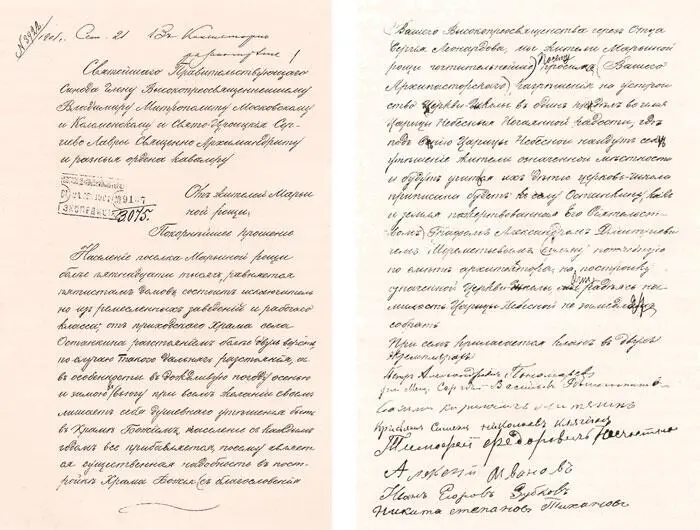 №3922
1901. Сен. 21 Въ Консисторiю
на разсмотрѣнiе
Святѣйшаго Правительствующаго
Синода члену Высокопреосвященнѣйшему
Владимiру Митрополиту Московскому
и Коломенскому и Свято-Троицкiя Сер-
гiево Лавры Священно-Архимандриту
и разныхъ ордена кавалеру
8075.
Отъ жителей Марьи-
ной рощи.
Покорнѣйшее прошенiе
Населенiе поселка Марьиной рощи
болѣе пятнадцати тысячъ, равняется
пятистамъ домовъ, состоитъ исключитель-
но изъ ремесленныхъ заведенiй и рабочаго
класса; отъ приходскаго Храма села
Останкина разстоянiемъ болѣе двухъ верстъ,
по случаю такого дальняго разстоянiя, а
въ особенности въ дождливую погоду осенью
и зимою вьюгу при всемъ желанiи своемъ
лишаетъ себя душевнаго утѣшенiя быть
въ Храмѣ Божiемъ, население съ каждымъ
годомъ все прибавляется, посему является
существенная надобность въ пост-
ройкѣ Храма Божiя (съ благословенiя
Вашего Высокопреосвященства чрезъ Отца
Сергѣя Леонардова, мы жители Марьиной
рощи почтительнѣйше просимъ (Вашего
Архипастырского) разрѣшенiя на устрой-
ство Церкви-Школы въ одинъ придѣлъ во имя
Царицы Небесныя Нечаянной радости, гдѣ
подъ сѣнiю Царицы Небесной найдутъ себѣ
утѣшенiе жители означенной мѣстности
и будутъ учиться ихъ дѣти церковь-школа
приписана будетъ къ селу Останкину, какъ
и земля пожертвованная Его Сiятельст-
вомъ Графомъ Александромъ Дмитрiеви-
чемъ Шереметьевымъ
по смѣтѣ архитектора, на постройку
означенной Церкви-Школы надѣясь на
милость Царицы Небесной
собрать
При семъ прилагается планъ въ двухъ
экземплярахъ
Петръ Александровичъ Пономаревъ
Мещ. Сергѣй Васильевъ
Тимофей Федоровичъ
Алексей Ивановъ
Иванъ Егоровъ Зубковъ
Никита Степановъ Тихановъ